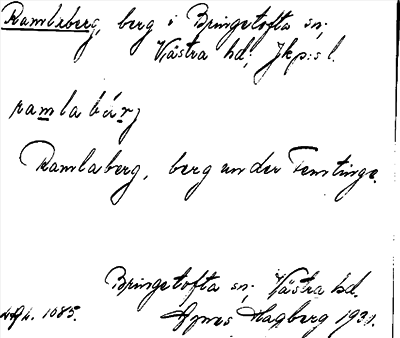 Ramlaberg, berg i Bringetofta sn;
Västra hd; Jkp:s l.
ramla bárj
Ramlaberg, berg under Femtinge.
Bringetofta sn; Västra hd.
1085. Agnes Hagberg 1931.